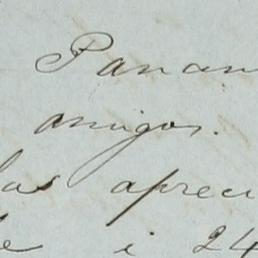 Panam
amigos.
las apreci
de i 24